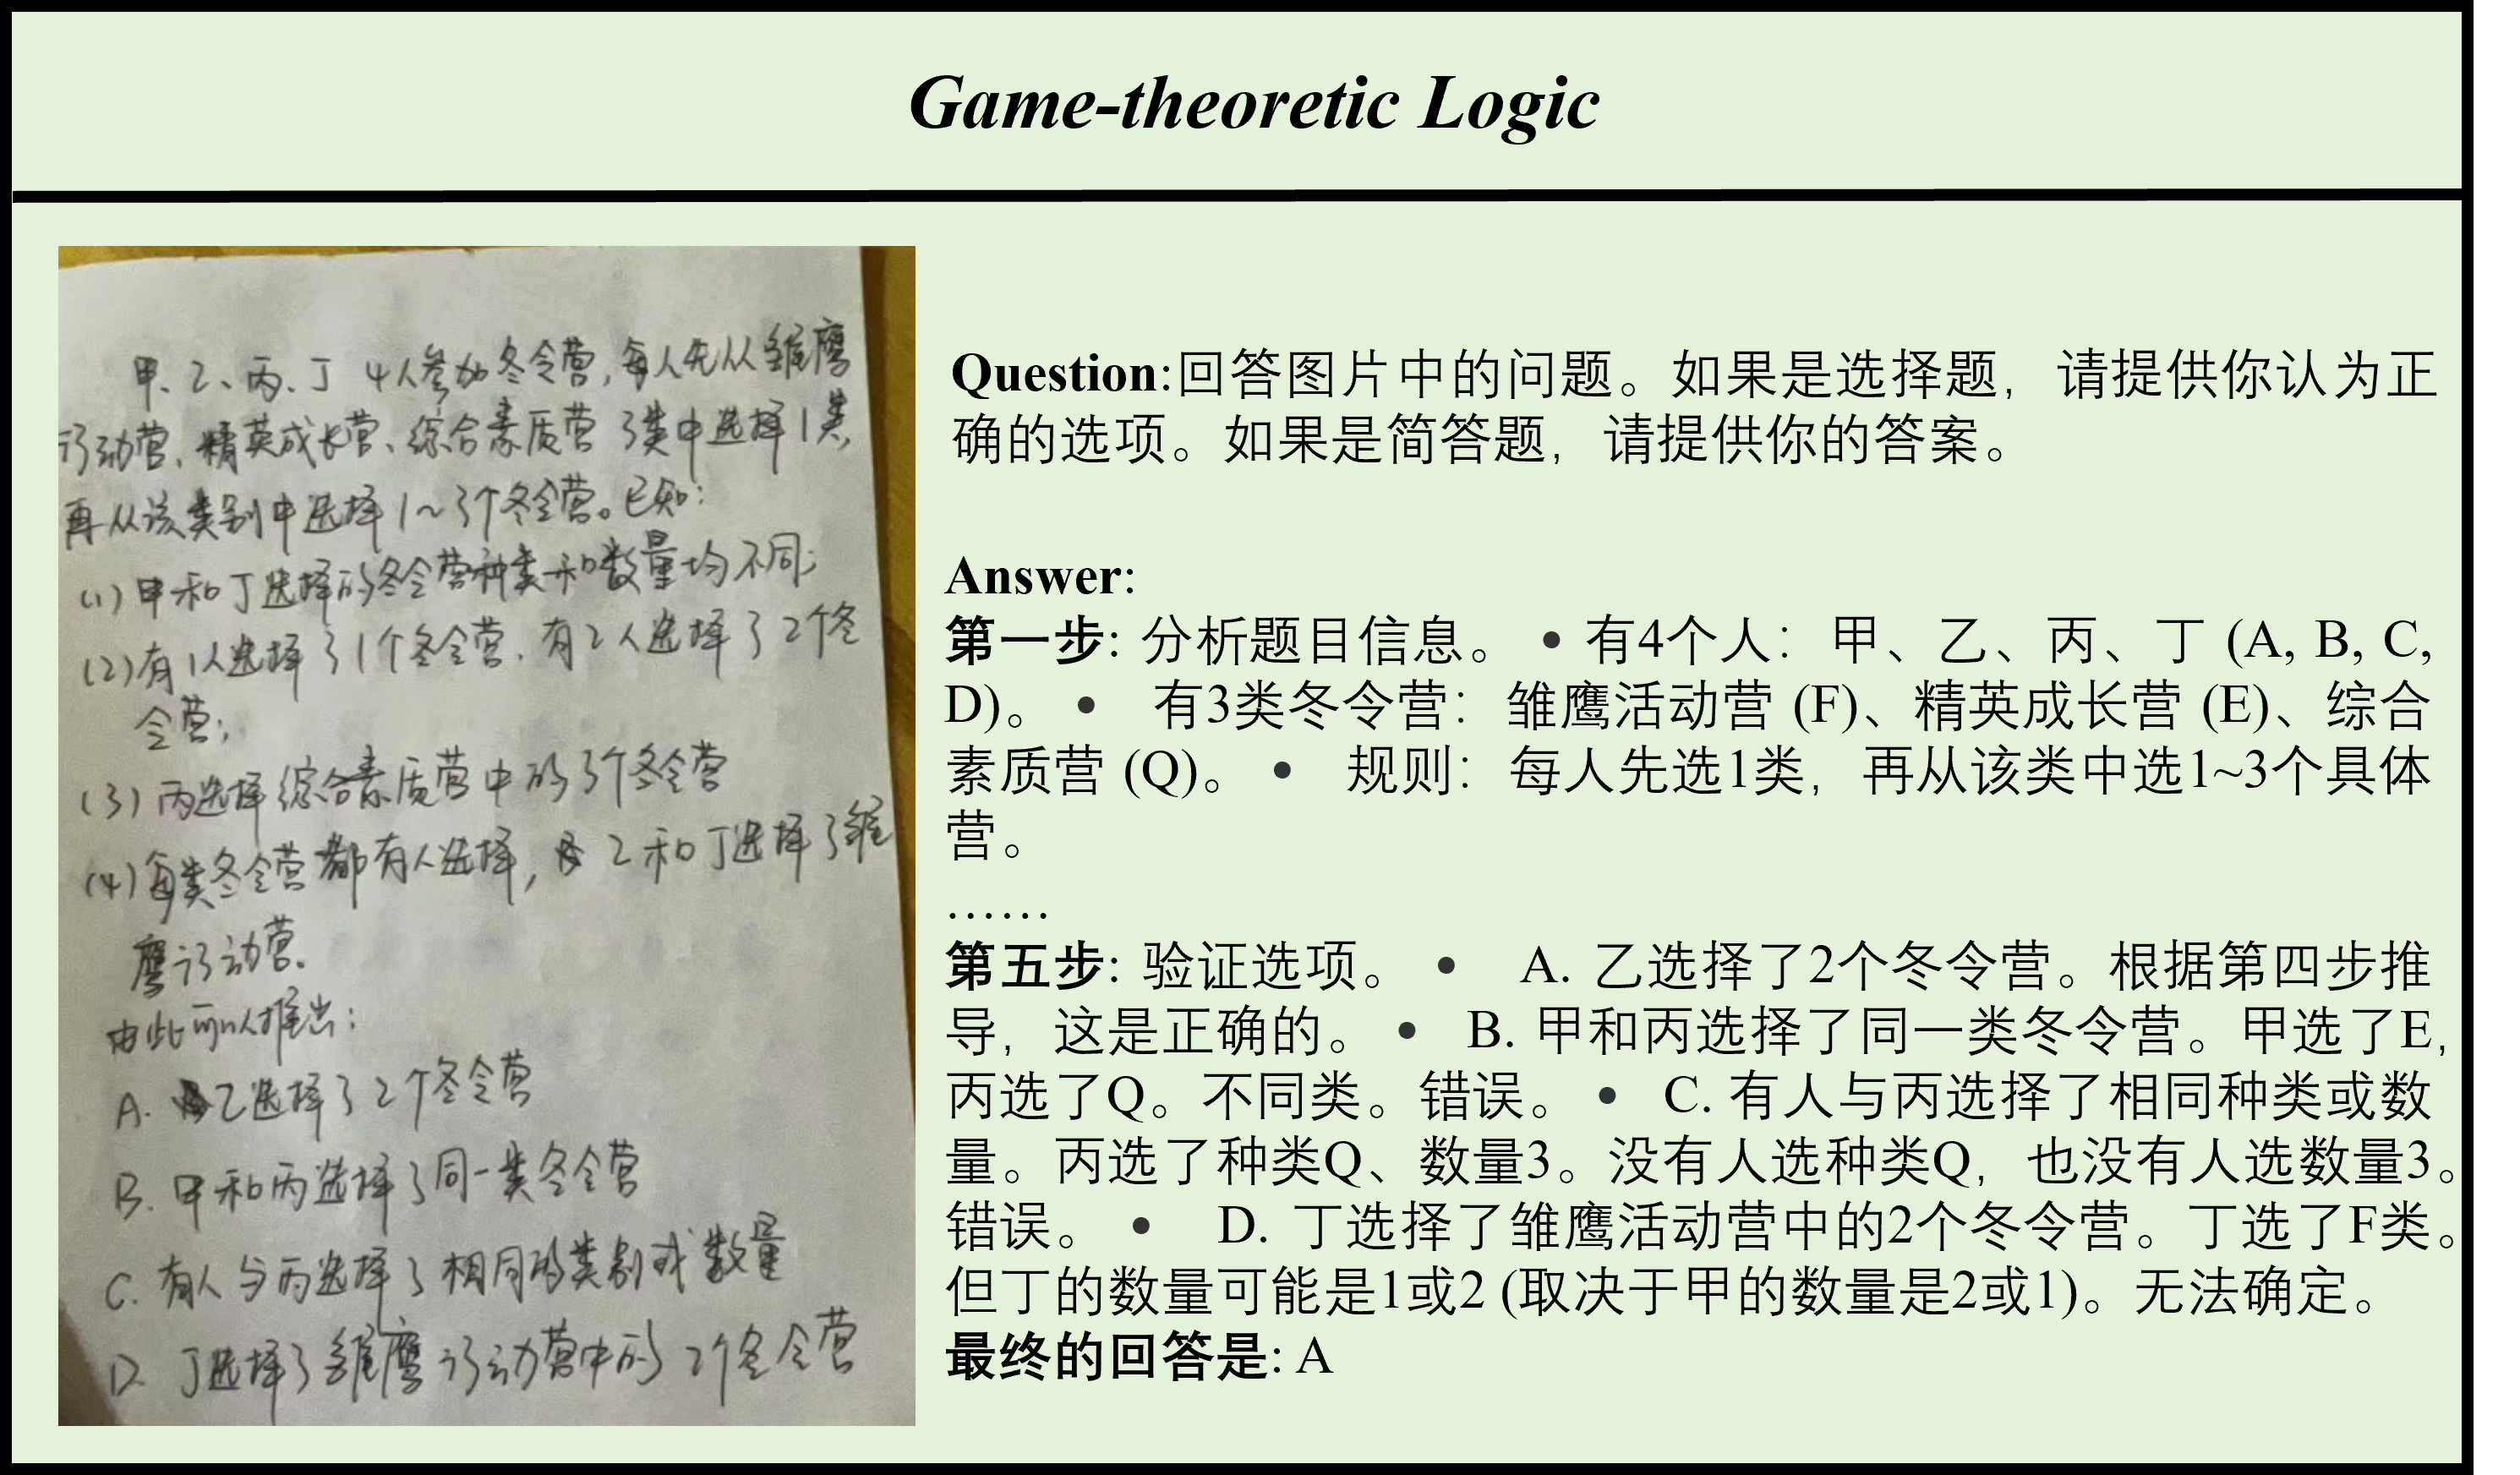 Game-theoretic Logic
甲、乙、丙、丁 4人参加冬令营,每人先从雏鹰
活动营、精英成长营、综合素质营 3类中选择1类,
再从该类别中选择1~3个冬令营。已知:
(1)甲和丁选择的冬令营种类和数量均不同;
(2)有1人选择了1个冬令营,有2人选择了2个冬
令营;
(3)丙选择综合素质营中的3个冬令营
(4)每类冬令营都有人选择,乙和丁选择了雏
鹰活动营。
由此可以推出:
A. 乙选择了2个冬令营
B. 甲和丙选择了同一类冬令营
C. 有人与丙选择了相同的类别或数量
D. 丁选择了雏鹰活动营中的2个冬令营
Question:回答图片中的问题。如果是选择题，请提供你认为正
确的选项。如果是简答题，请提供你的答案。
Answer:
第一步: 分析题目信息。 • 有4个人：甲、乙、丙、丁 (A, B, C,
D)。 • 有3类冬令营：雏鹰活动营 (F)、精英成长营 (E)、综合
素质营 (Q)。 • 规则：每人先选1类，再从该类中选1~3个具体
营。
……
第五步: 验证选项。 • A. 乙选择了2个冬令营。根据第四步推
导，这是正确的。 • B. 甲和丙选择了同一类冬令营。甲选了E,
丙选了Q。不同类。错误。 • C. 有人与丙选择了相同种类或数
量。丙选了种类Q、数量3。没有人选种类Q，也没有人选数量3。
错误。 • D. 丁选择了雏鹰活动营中的2个冬令营。丁选了F类。
但丁的数量可能是1或2 (取决于甲的数量是2或1)。无法确定。
最终的回答是: A